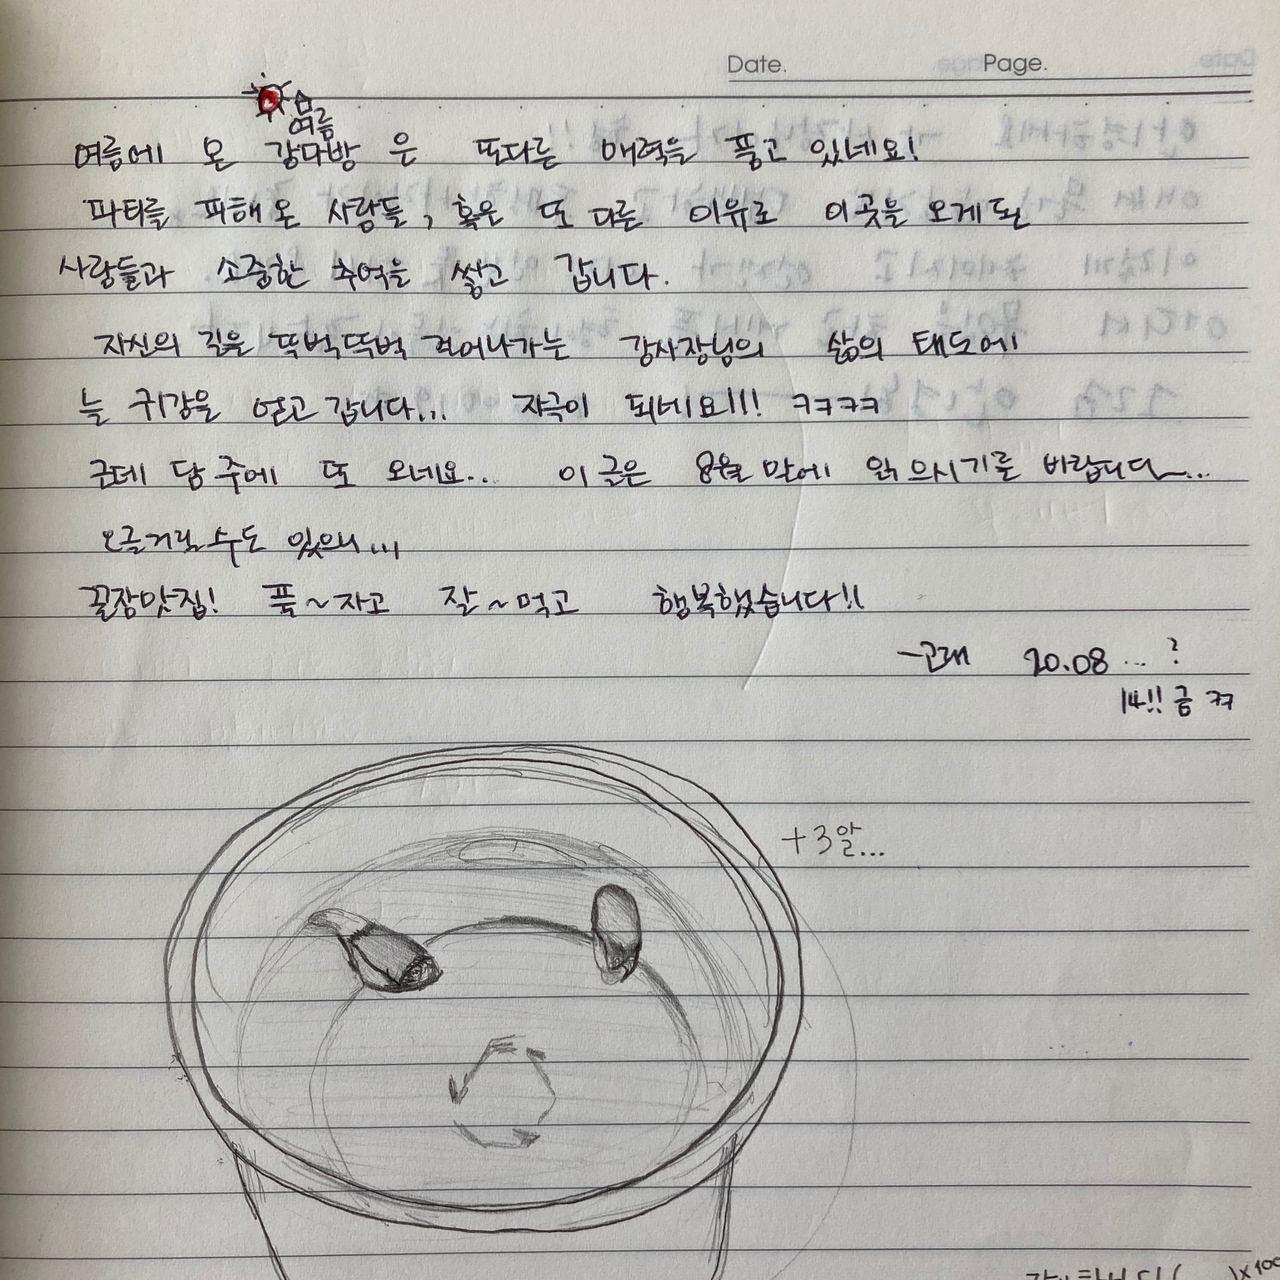 Date. Page.
여름
여름에 온 강다방 은 또다른 매력을 품고 있네요!
파티를 피해 온 사람들, 혹은 또 다른 이유로 이곳을 오게된
사람들과 소중한 추억을 쌓고 갑니다.
자신의 길을 뚜벅뚜벅 걸어나가는 강사장님의 삶의 태도에
늘 귀감을 얻고 갑니다... 자극이 되네요!!! ㅋㅋㅋㅋ
근데 담주에 또 오네요... 이 글은 8월 말에 읽으시기를 바랍니다~...
오글거릴 수도 있으니...
꿀잠맛집! 푹~자고 잘~먹고 행복했습니다!!
-고래 20.08...?
14!! 금 ㅋㅋ
+3알...
x100